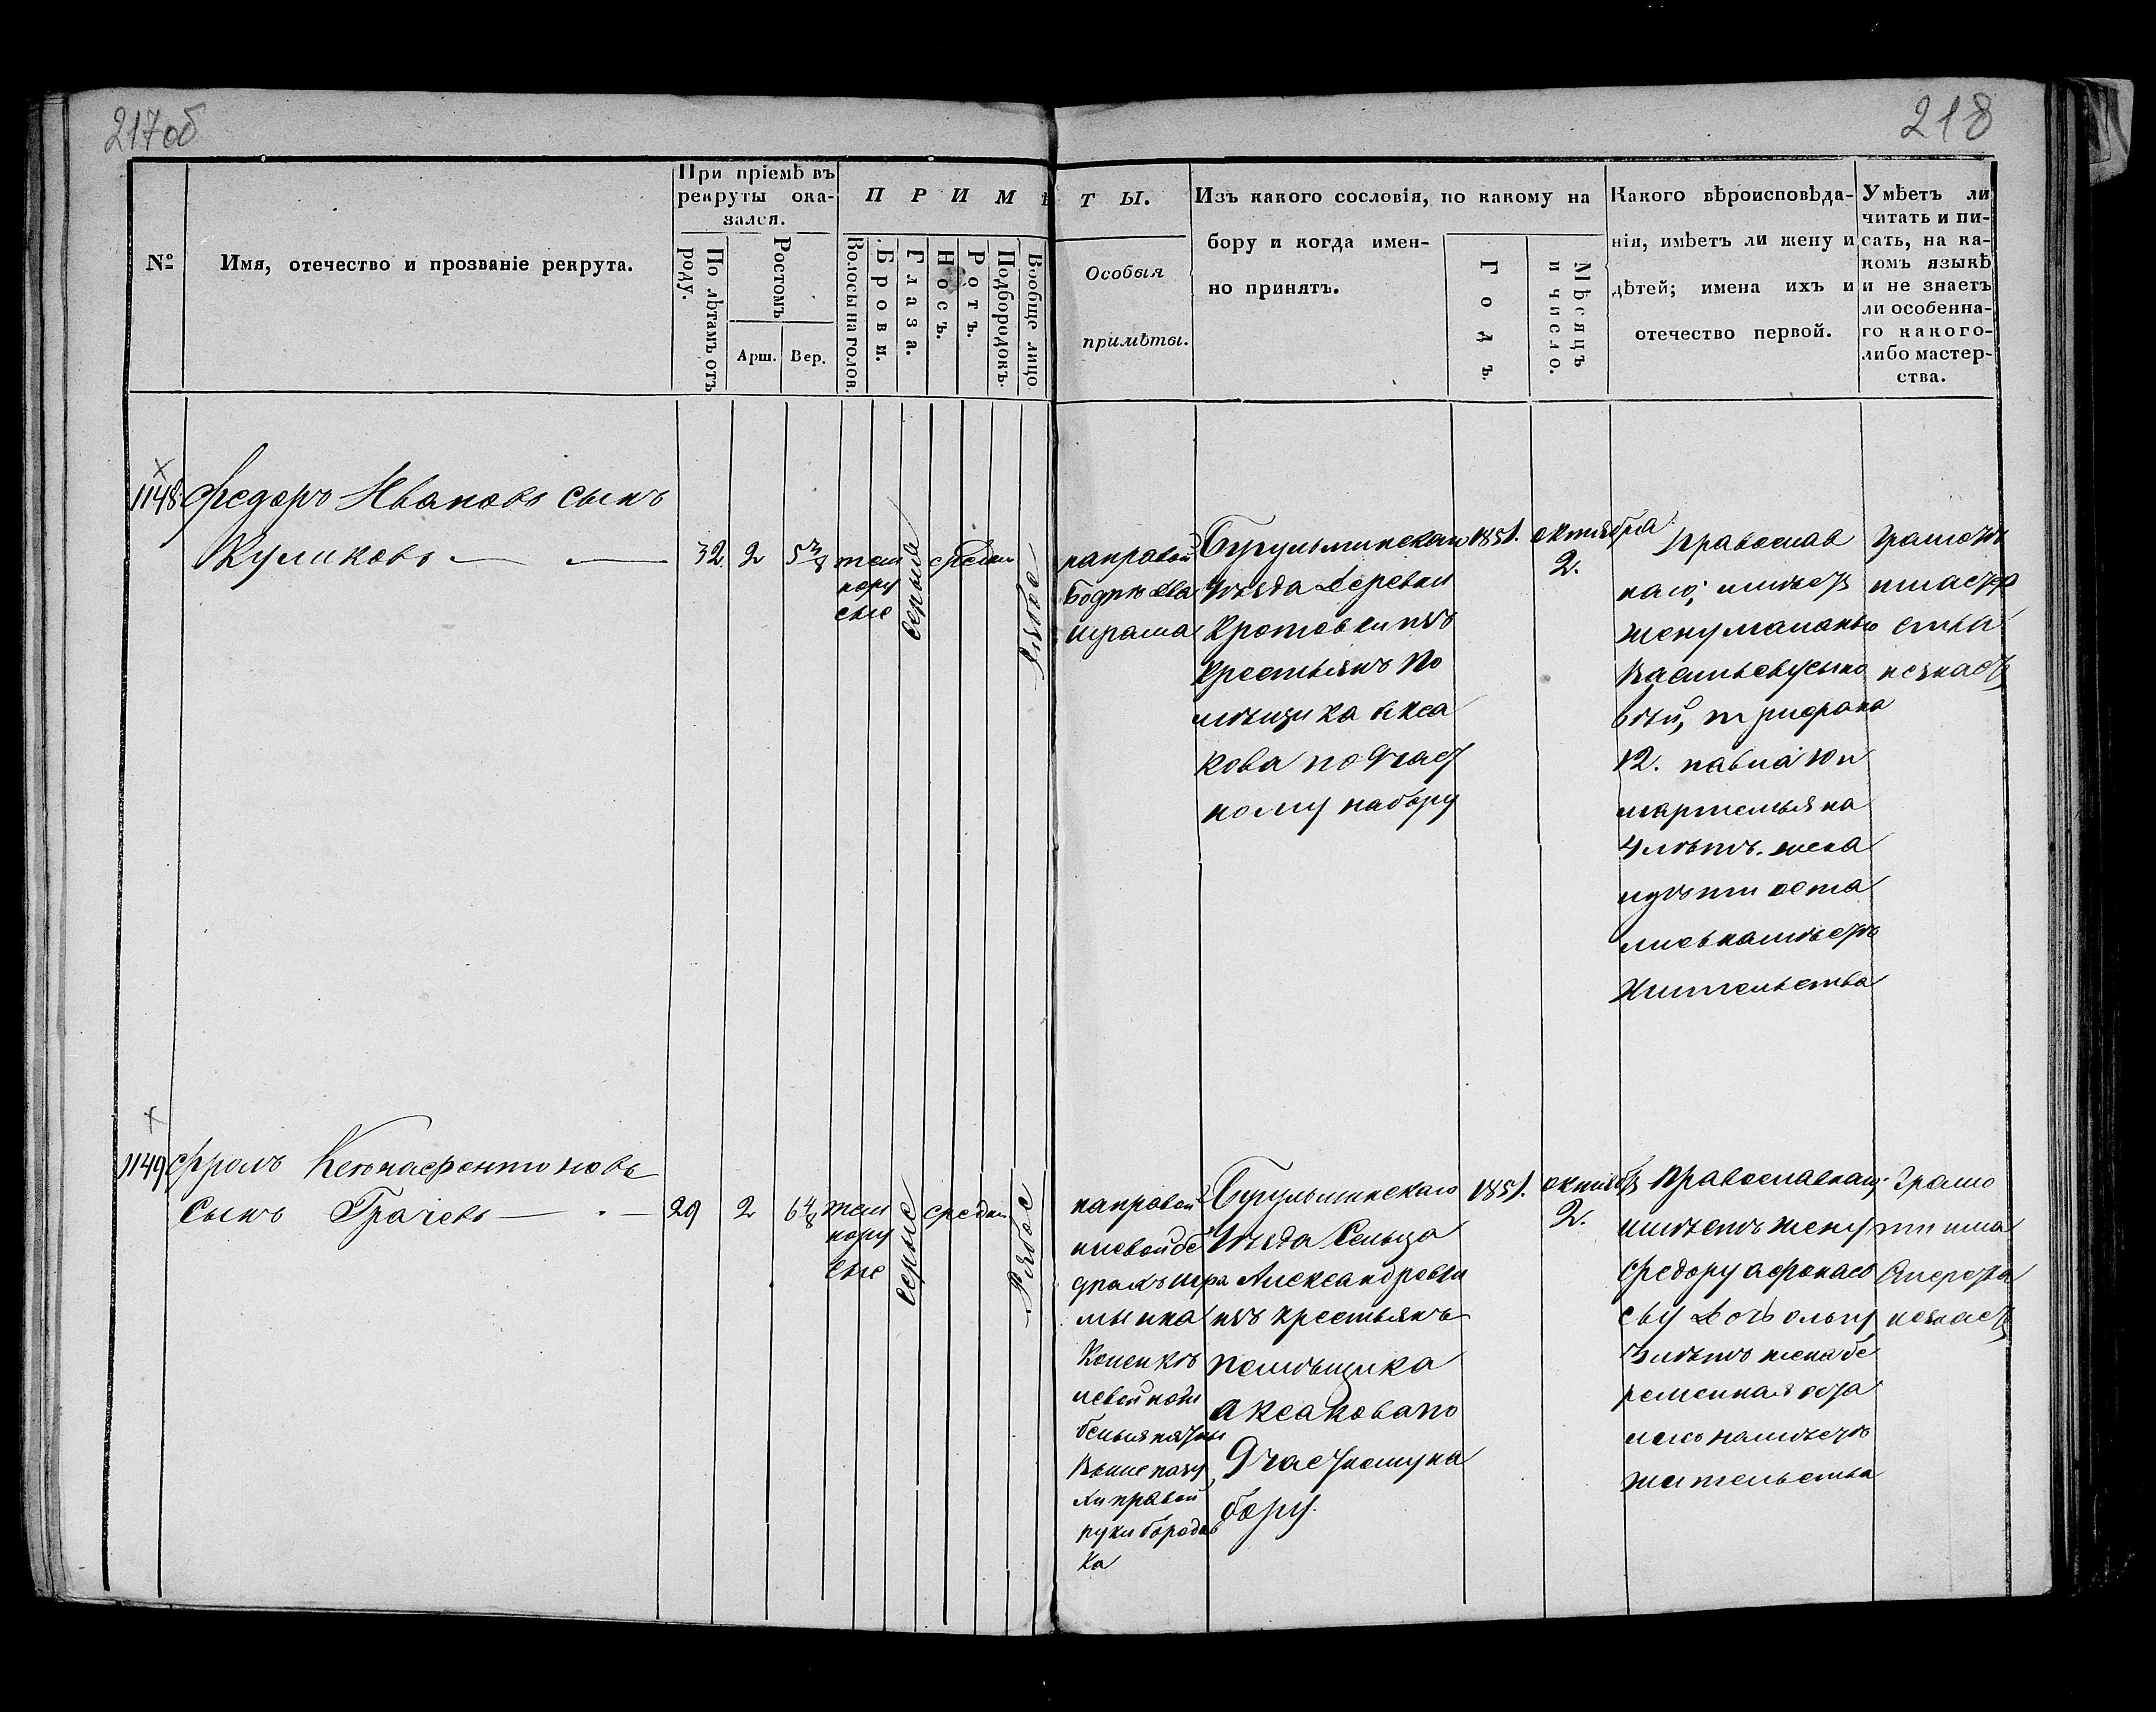 217об
218
№
Имя, отечество и прозваніе рекрута.
При пріемѣ въ
рекруты ока-
зался.
По лѣтамъ отъ
роду.
Ростомъ
Арш.
Вер.
П Р И М Ѣ Т Ы.
Волосы на голов.
Брови.
Глаза.
Носъ.
Ротъ.
Подбородокъ.
Вообще лицо
Особыя
примѣты.
Изъ какого сословія, по какому на
бору и когда имен-
но принятъ.
Годъ.
Мѣсяцъ
и число.
Какого вѣроисповѣда-
нія, имѣетъ ли жену и
дѣтей; имена ихъ и
отечество первой.
Умѣетъ ли
читать и пи-
сать, на ка-
комъ языкѣ
и не знаетъ
ли особенна-
го какого-
либо мастер-
ства.
1148
Федоръ Ивановъ сынъ
Куликовъ
32
2
5 3/8
тем
нору
сые
серые
средн
Рябое
направой
бодрѣ два
шрама
Бугульминскаго
Уѣзда Деревни
Кротовки изъ
крестьянъ По
мѣщика Акса
кова по 9 част
ному набору
1851.
октября
2.
Православ
наго; имѣетъ
жену маланью
Васильеву сыно
вьей, трифона
12. павла 10 и
мартемьяна
4 лѣтъ. жена
идѣти оста
лись намѣстѣ
Жительства
грамотѣ
имастер
ствы
незнаетъ
1149
Фролъ Ксенофонтовъ
сынъ Грачевъ
29
2
6 4/8
тем
нору
сые
серые
средни
Рябое
направой
илевой бе
драхъ шра
мы ина
Коленкѣ
левой ноги
Выше
правой
руки бородав
ка
Бугульминскаго
Уѣзда Сельца
Александровки
изъ крестьянъ
помѣщика
Аксакова по
9 частному на
бору.
1851.
октяб
2.
Православнаго.
имѣетъ жену
федору афонась
еву дочь ольгу
3 лѣтъ жена бе
ременная оста
лась намѣстѣ
жительства
Грамо
ти има
стерства
незнаетъ